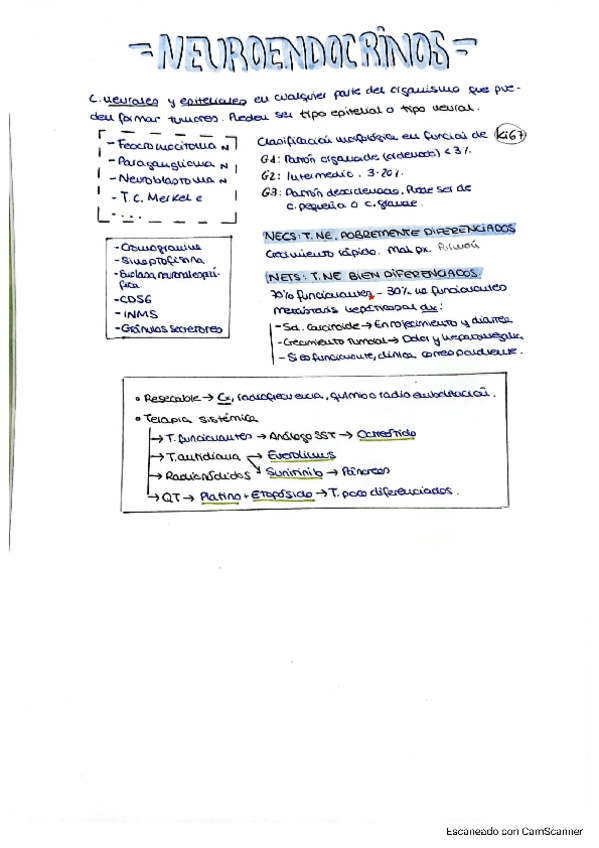 - NEUROENDOCRINOS -
C. neurales y epiteliales en cualquier parte del organismo que pue-
den formar tumores. Pueden ser tipo epitelial o tipo neural.
- Feocromocitoma N
- Paraganglioma N
- Neuroblastoma N
- T.C. Merkel e
- ...
Clasificación morfológica en función de Ki67
G1: Patrón organoide (ordenado) < 3%
G2: Intermedio. 3-20%
G3: Patrón desordenado. Puede ser de
c. pequeña o c. grande.
- Cromogranina
- Sinaptofisina
- Enolasa neuronal específi-
fica
- CD56
- INMS
- Gránulos secretores
NECS: T. NE. POBREMENTE DIFERENCIADOS
Crecimiento rápido. Mal px. Pulmón
NETS: T. NE BIEN DIFERENCIADOS.
70% funcionantes - 30% no funcionantes
Metástasis hepáticas al dx:
- Sd. carcinoide → Enrojecimiento y diarrea
- Crecimiento tumoral → Dolor y hepatomegalia
- Si es funcionante, clínica correspondiente.
• Resecable → Cx, radiofrecuencia, quimio o radio embolización.
• Terapia sistémica
→ T. funcionantes → Análogo SST → Octreótido
→ T. antidiana → Everolimus
→ Radionúclidos Sunitinib → Páncreas
→ QT → Platino + Etopósido → T. poco diferenciados.
Escaneado con CamScanner